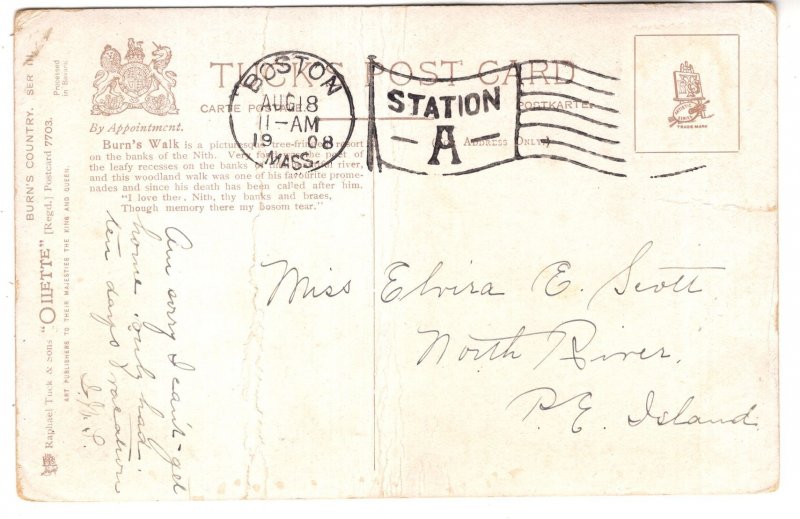 TUCK'S POST CARD
CARTE POSTALE
POSTKARTE
(ADDRESS ONLY.)
BOSTON
AUG 18
11-AM
1908
MASS.
STATION
A
By Appointment.
Burn's Walk is a picturesque tree-fringed resort
on the banks of the Nith. Very fond the poet of
the leafy recesses on the banks of river,
and this woodland walk was one of his favourite prome-
nades and since his death has been called after him.
"I love thee, Nith, thy banks and braes,
Though memory there my bosom tear."
TRADE MARK
BURN'S COUNTRY. SER
Raphael Tuck & Sons "OILETTE" [Regd.] Postcard 7703.
ART PUBLISHERS TO THEIR MAJESTIES THE KING AND QUEEN.
Processed
in Bavaria
Am sorry I can't get
home only had
ten days vacation
Miss Elvira E. Scott
North River
P.E. Island